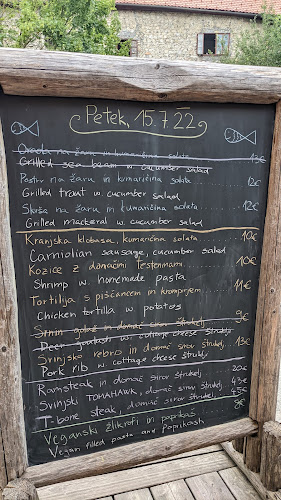 Petek, 15.7.22
Orada na žaru in kumarična solata 13€
Grilled sea bream w. cucumber salad
Postrv na žaru in kumarična solata 12€
Grilled trout w. cucumber salad
Skuša na žaru in kumarična solata 12€
Grilled mackeral w. cucumber salad
Kranjska klobasa, kumarična solata 10€
Carniolian sausage, cucumber salad
Kozice z domačimi testeninami 10€
Shrimp w. homemade pasta
Tortilija s piščancem in krompirjem 11€
Chicken tortilla w. potatos
Srnin golaž in domač sirov štrukelj 9€
Deer goulash w. cottage cheese štrukelj
Svinjsko rebro in domač sirov štrukelj 13€
Pork rib w. cottage cheese štrukelj
Rumpsteak in domač sirov štrukelj 20€
Svinjski TOMAHAWK, domač sirov štrukelj 43€
T-bone steak, domač sirov štrukelj 45€
Veganski žlikrofi in paprikaš 8€
Vegan filled pasta and Paprikash